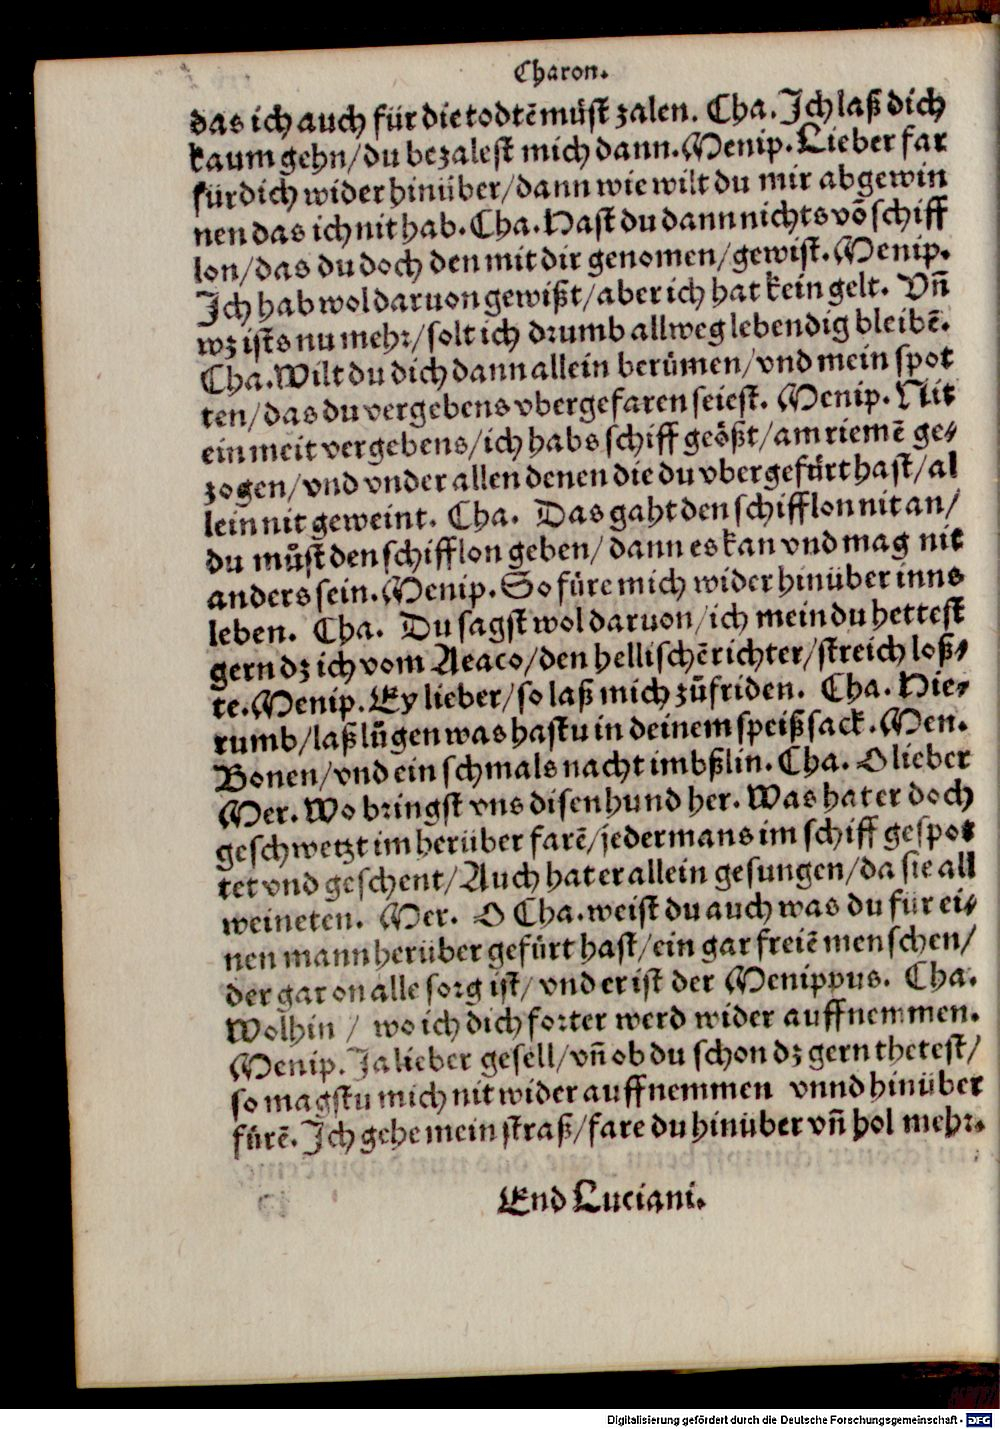 Charon.
das ich auch für die todtē mu̓st zalen. Cha. Ich laß dich
kaum gehn/ du bezalest mich dann. Menip. Lieber far
für dich wider hinüber/ dann wie wilt du mir abgewin
nen das ich nit hab. Cha. Hast du dann nichts võ schiff
lon/ das du doch den mit dir genomen/ gewist. Menip.
Ich hab wol daruon gewißt/ aber ich hat kein gelt. Vñ
wz ists nu mehr/ solt ich drumb allweg lebendig bleibē.
Cha. Wilt du dich dann allein berümen/ vnd mein spot
ten/ das du vergebens vbergefaren seiest. Menip. Nit
ein meit vergebens/ ich habs schiff geößt/ am riemē ge-
zogen/ vnd vnder allen denen die du vbergefürt hast/ al
lein nit geweint. Cha. Das gaht den schifflon nit an/
du můst den schifflon geben/ dann es kan vnd mag nit
anders sein. Menip. So füre mich wider hinüber inns
leben. Cha. Du sagst wol daruon/ ich mein du hettest
gern dz ich vom Aeaco/ den hellischē richter/ streich loß-
te. Menip. Ey lieber/ so laß mich zůfriden. Cha. Hie-
rumb/ laß lůgen was hastu in deinem speißsack. Men.
Bonen/ vnd ein schmals nacht imbßlin. Cha. O lieber
Mer. Wo bringst vns disen hund her. Was hat er doch
geschwetzt im herüber farē/ jedermans im schiff gespot
tet vnd geschent/ Auch hat er allein gesungen/ da sie all
weineten. Mer. O Cha. weist du auch was du für ei-
nen mann herüber gefürt hast/ ein gar freiē menschen/
der gar on alle sorg ist/ vnd er ist der Menippus. Cha.
Wolhin / wo ich dich forter werd wider auffnemmen.
Menip. Ja lieber gesell/ vñ ob du schon dz gern thetest/
so magstu mich nit wider auffnemmen vnnd hinüber
fürē. Ich gehe mein straß/ fare du hinüber vñ hol mehr.
End Luciani.
Digitalisierung gefördert durch die Deutsche Forschungsgemeinschaft - DFG